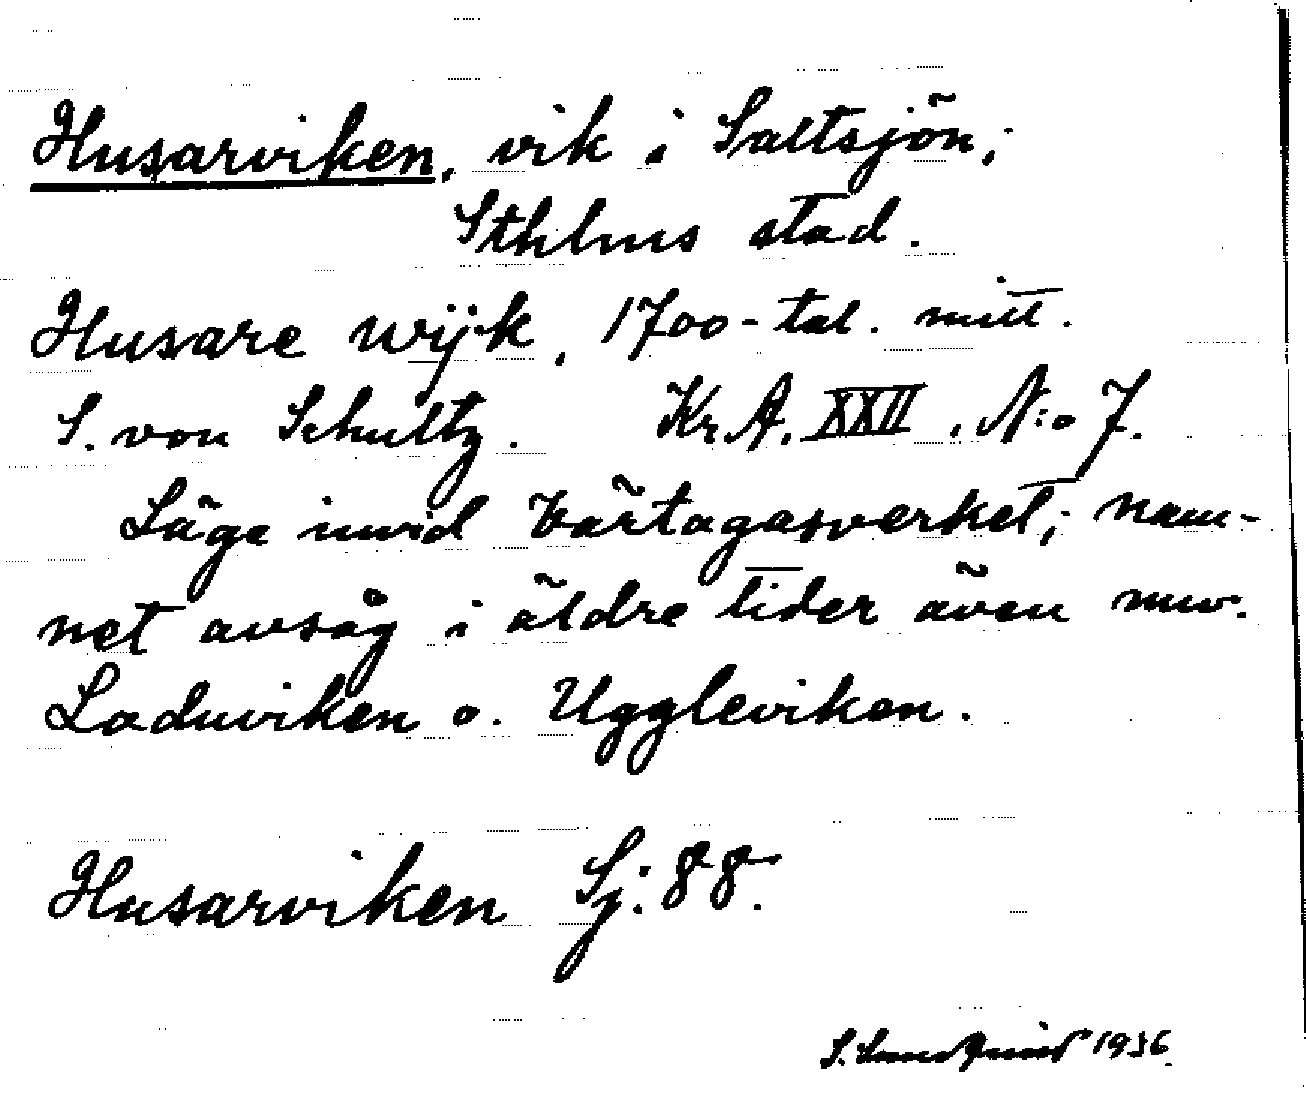 Husarviken, vik i Saltsjön;
Sthlms stad.
Husare wijk, 1700-tal. mitt.
S. von Schultz. Kr A. XXII, N:o 7.
Läge invid Värtagasverket; nam-
net avsåg i äldre tider även nuv.
Laduviken o. Uggleviken.
Husarviken Sj: 88.
S. 1936